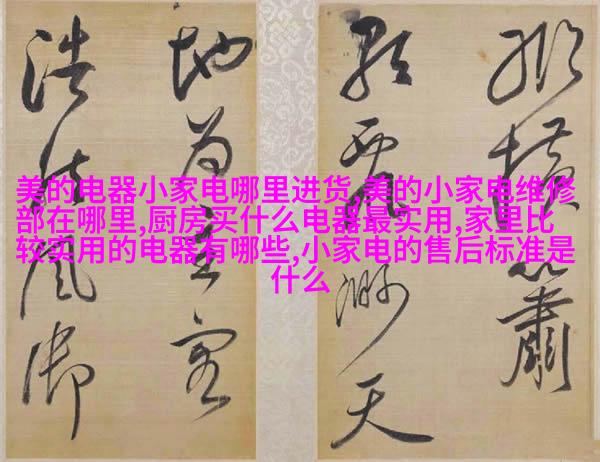 美的电器小家电哪里进货,美的小家电维修
部在哪里,厨房买什么电器最实用,家里比
较实用的电器有哪些,小家电的售后标准是
什么
橫簫
西風渺天
地為主
浩風御